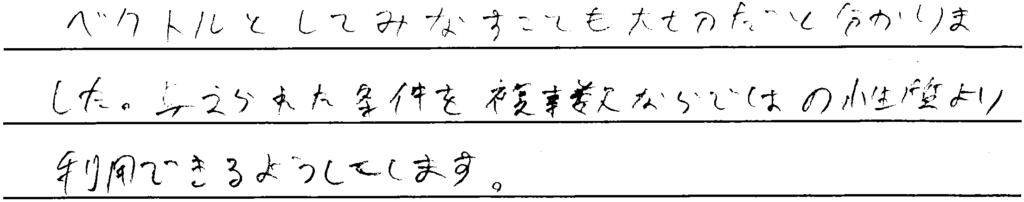 ベクトルとしてみなすことも大切だと分かりま
した。与えられた条件を複素数ならではの性質より
利用できるようしてします。